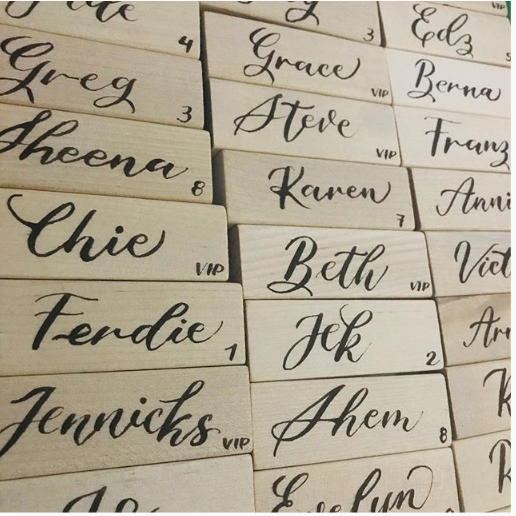 4
Greg
3
Sheena
8
Chie
VIP
Ferdie
1
Jennicks
VIP
3
Grace
VIP
Steve
VIP
Karen
7
Beth
VIP
Jek
2
Shem
8
Evelyn
VIP
Edz
5
Berna
Franz